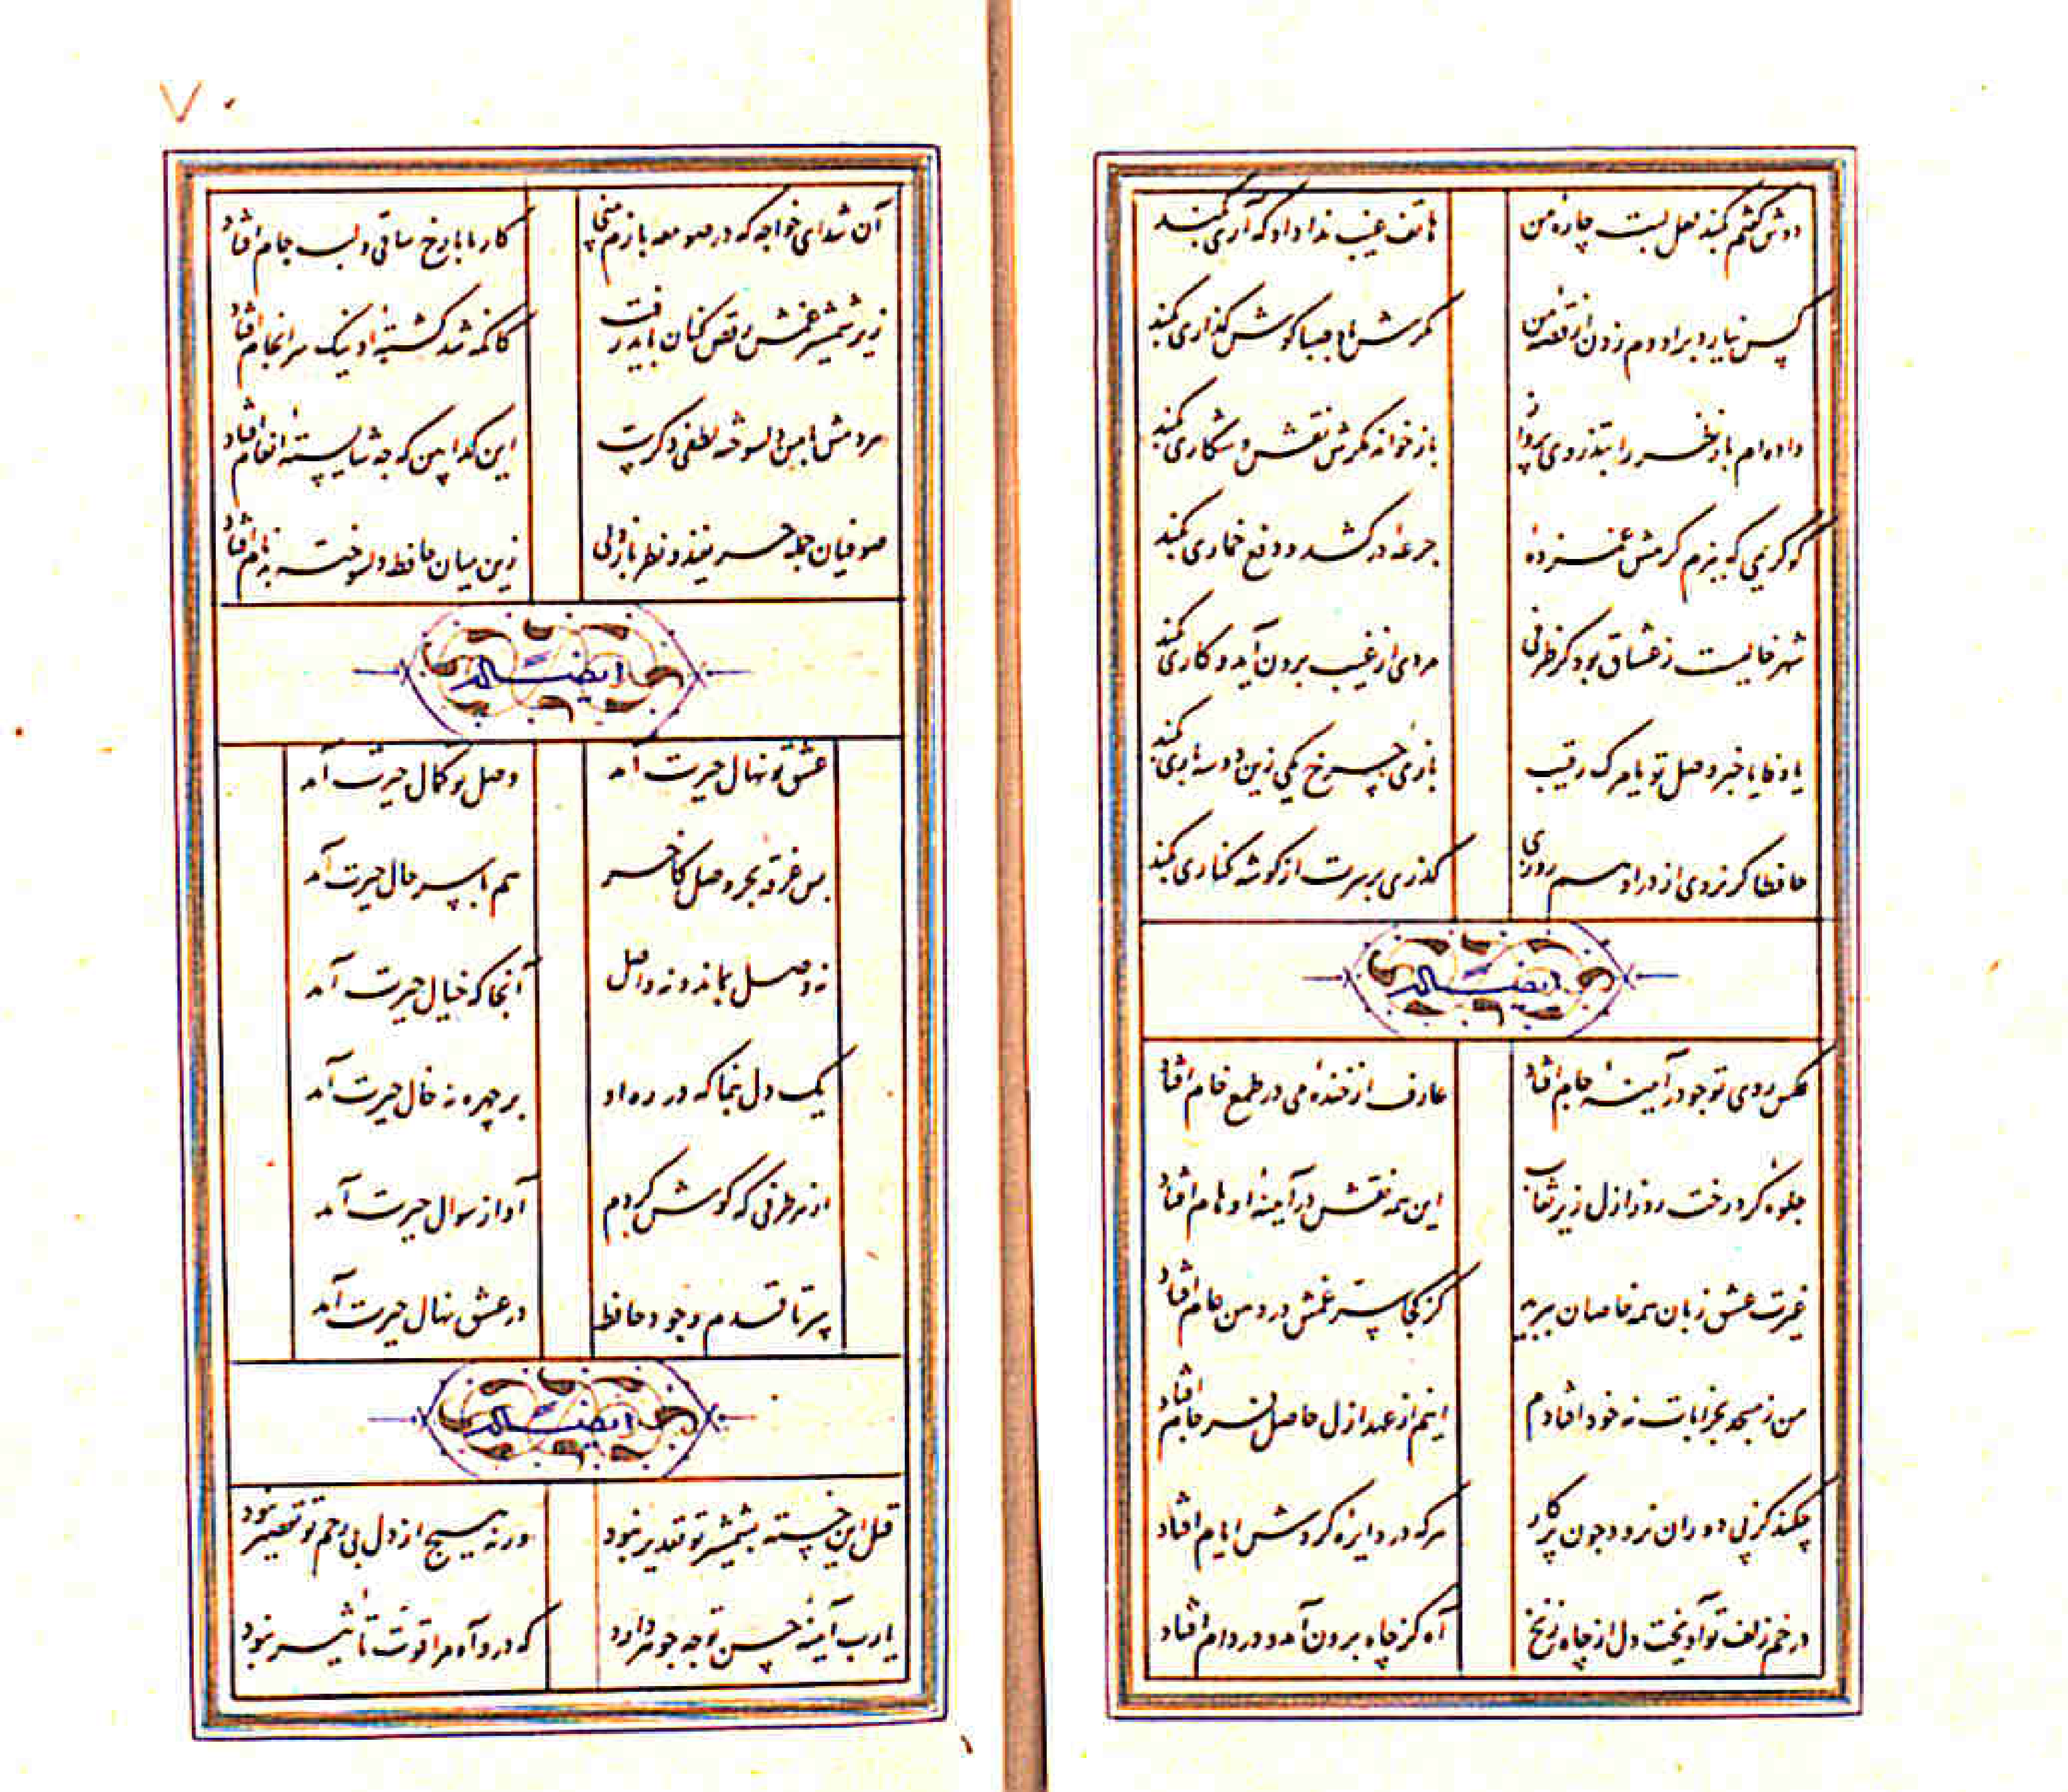 دوش گفتم کند لعل لبت چارهٔ من
هاتف غیب ندا داد که آری بکند
کس نیارد بر او دم زدن از قصهٔ من
مگرش باد صبا گوش گذاری بکند
داده ام باز نظر را بتذروی پرواز
باز خواند مگرش نقش و شکاری بکند
کو کریمی که ز بزم کرمش غمزدهٔ
جرعهٔ در کشد و دفع خماری بکند
شهر خالیست ز عشاق بود کز طرفی
مردی از غیب برون آید و کاری بکند
یا وفا یا خبر وصل تو یا مرک رقیب
بازی چرخ یکی زین دو سه باری بکند
حافظا گر نروی از در او هم روزی
گذری بر سرت از گوشه کناری بکند
ایضا له
عکس روی تو چو در آینهٔ جام افتاد
عارف از خندهٔ می در طمع خام افتاد
جلوهٔ کرد رخت روز ازل زیر نقاب
این همه نقش در آینهٔ اوهام افتاد
غیرت عشق زبان همه خاصان ببرید
کز کجا سر غمش در دهن عام افتاد
من ز مسجد بخرابات نه خود افتادم
اینم از عهد ازل حاصل فرجام افتاد
چکند کز پی دوران نرود چون پرکار
هر که در دایرهٔ گردش ایام افتاد
در خم زلف تو آویخت دل از چاه زنخ
آه کز چاه برون آمد و در دام افتاد
۷۰
آن شد ای خواجه که در صومعه بازم بینی
کار ما با رخ ساقی و لب جام افتاد
زیر شمشیر غمش رقص کنان باید رفت
کانکه شد کشتهٔ او نیک سرانجام افتاد
هر دمش با من دلسوخته لطفی دگرست
این گدا بین که چه شایستهٔ انعام افتاد
صوفیان جمله حریفند و نظرباز ولی
زین میان حافظ دلسوخته بدنام افتاد
ایضا له
عشق تو نهال حیرت آمد
وصل تو کمال حیرت آمد
بس غرقه بحر وصل کاخر
هم با سر حال حیرت آمد
نه وصل بماند و نه واصل
آنجا که خیال حیرت آمد
یک دل بنما که در ره او
بر چهره نه خال حیرت آمد
از هر طرفی که گوش کردم
آواز سوال حیرت آمد
سر تا قدم وجود حافظ
در عشق نهال حیرت آمد
ایضا له
قتل این خسته بشمشیر تو تقدیر نبود
ورنه هیچ از دل بی رحم تو تقصیر نبود
یارب آینهٔ حسن تو چه جوهر دارد
که درو آه مرا قوت تأثیر نبود